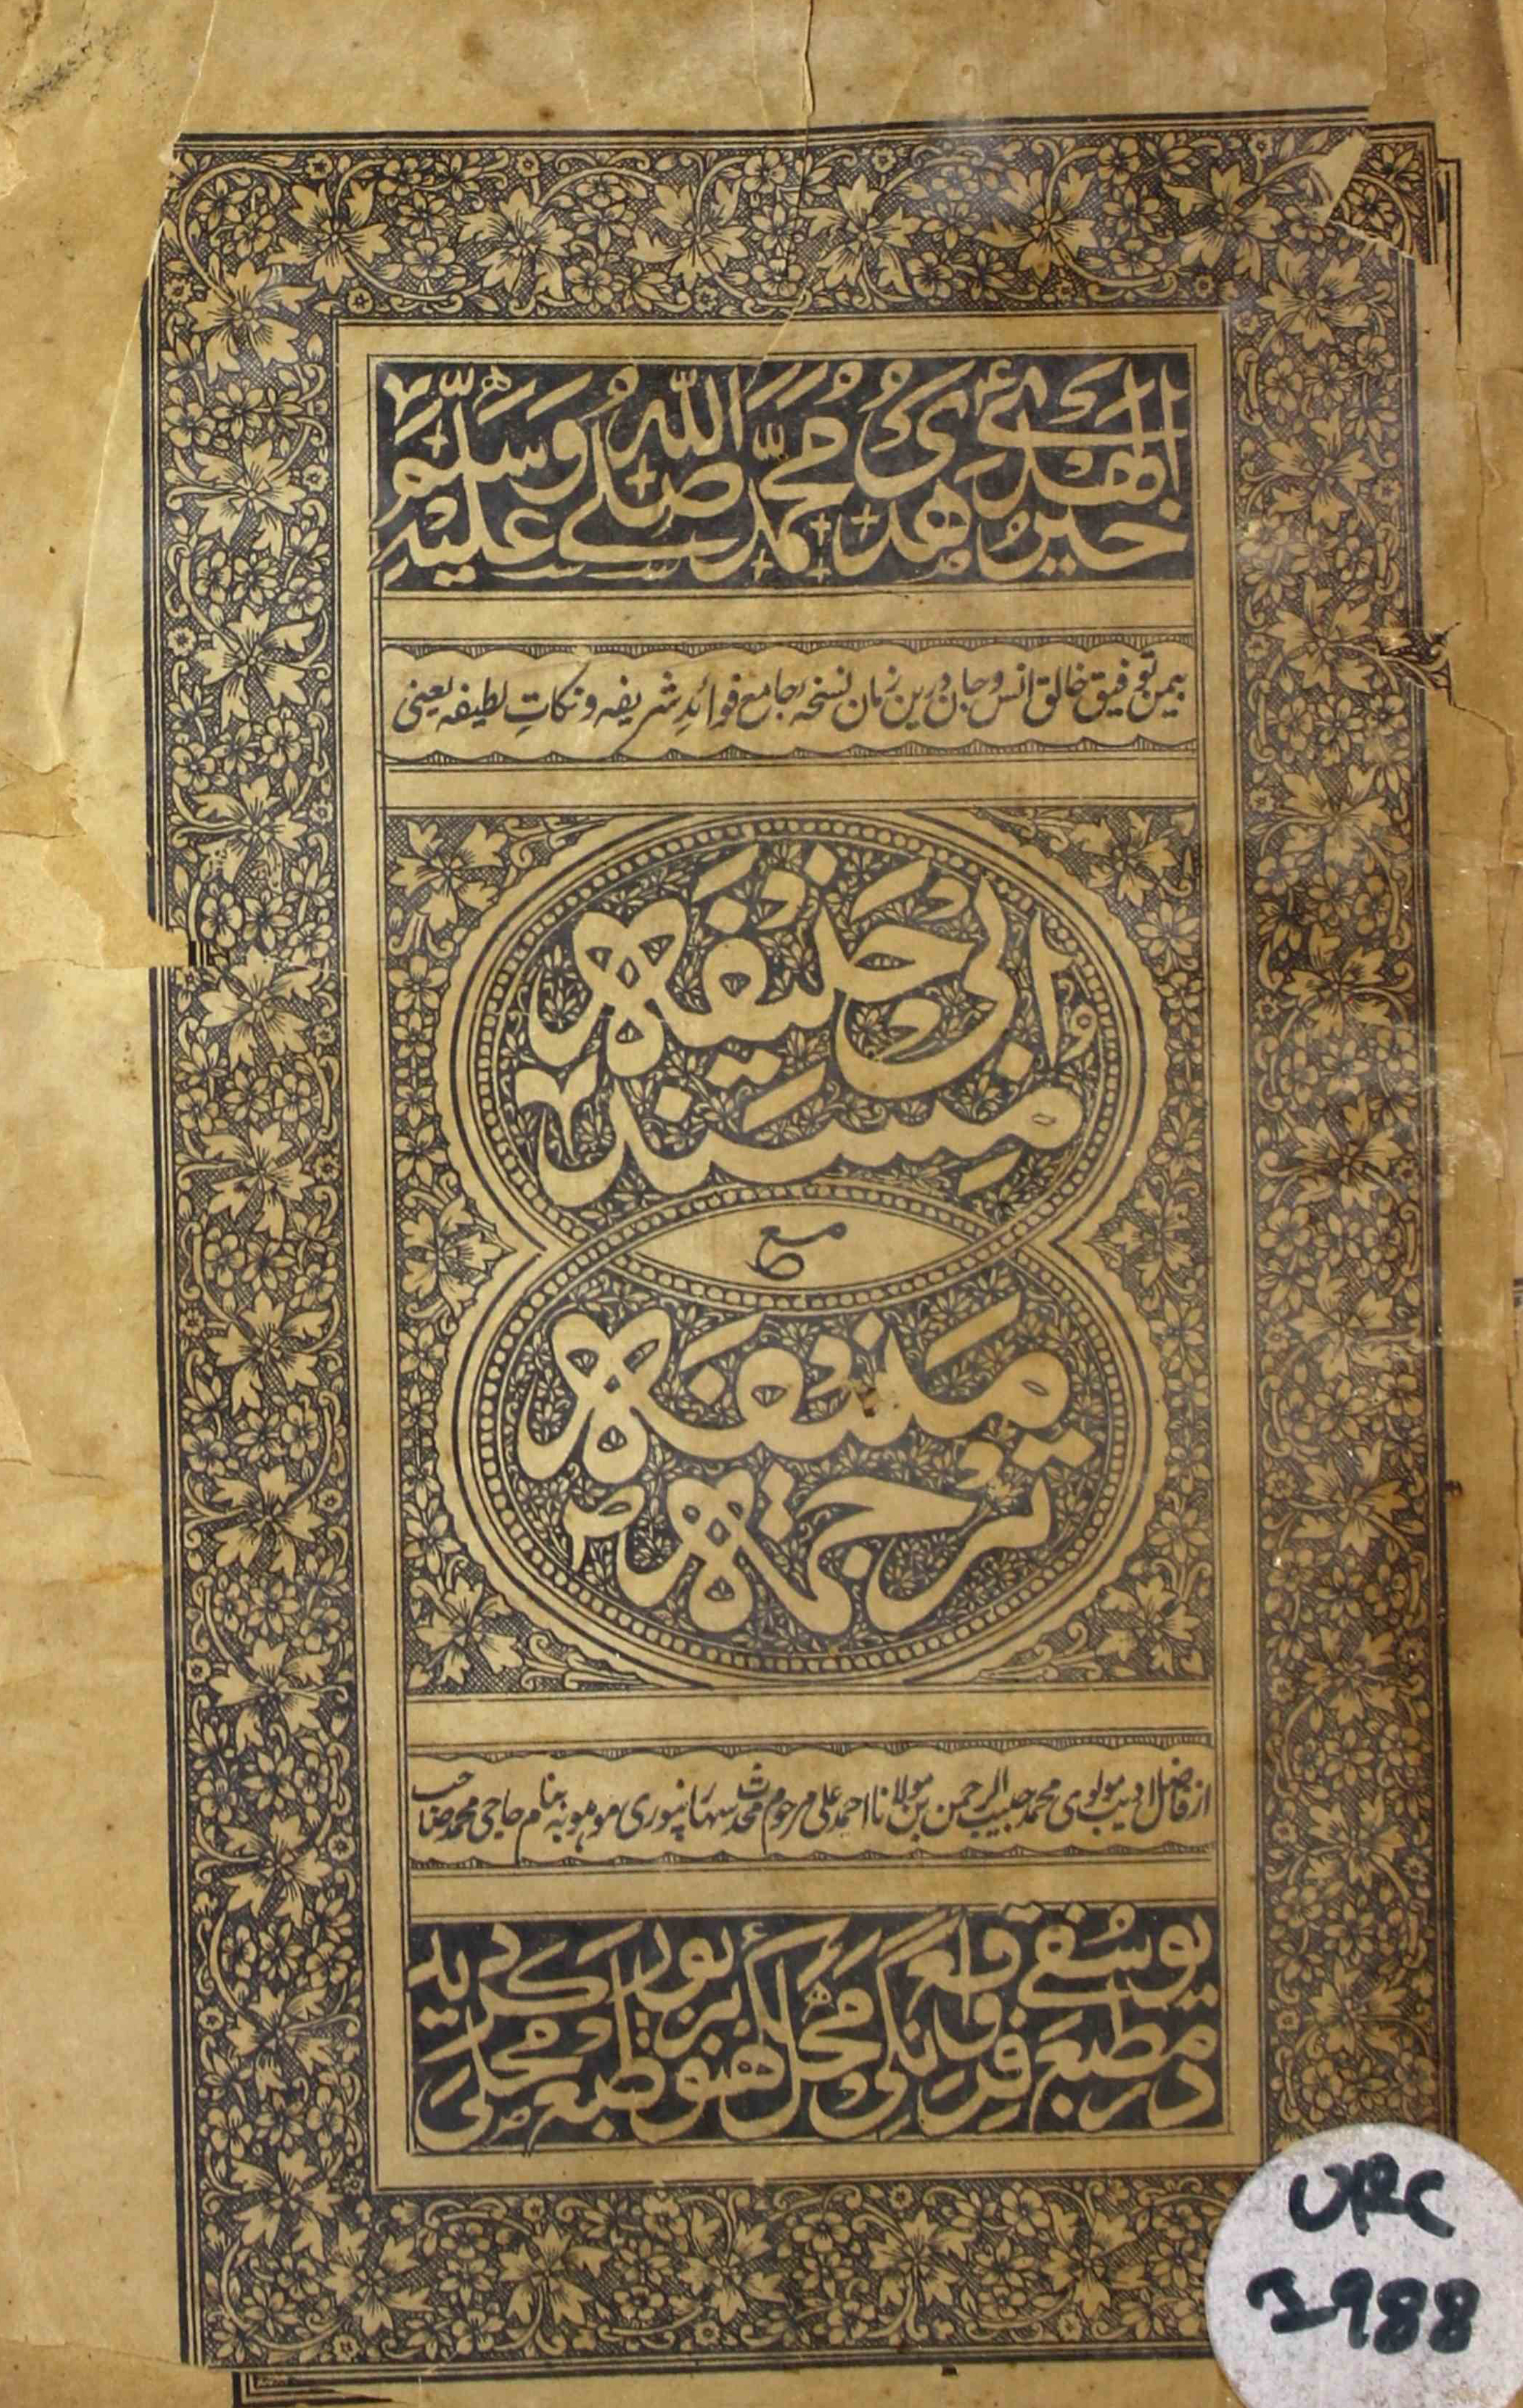 خير الهدى هدى محمد صلى الله عليه وسلم
بیمن توفیق خالق انس و جان درین زمان نسخۂ جامع فوائدِ شریفہ و نکاتِ لطیفہ یعنی
مسند ابی حنیفہ
مع
ترجمہ منیفہ
از فاضل ادیب مولوی محمد حبیب الرحمن بن مولانا احمد علی مرحوم محدث سہارنپوری موہوبہ بنام حاجی محمد صاحب
در مطبع یوسفی واقع فرنگی محل لکھنؤ بزیور طبع محلی گردید
URC
1988